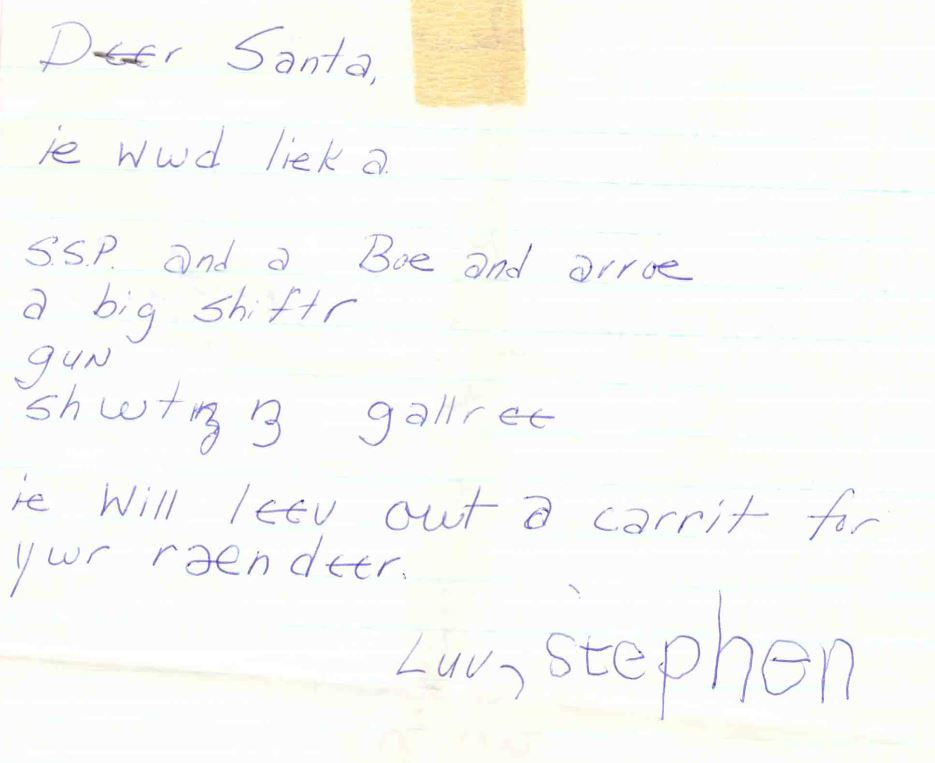 Deer Santa,
ie wwd liek a
S.S.P. and a Boe and arroe
a big shiftr
gun
shwting gallree
ie will leev owt a carrit for
ywr raendeer.
Luv, stephen